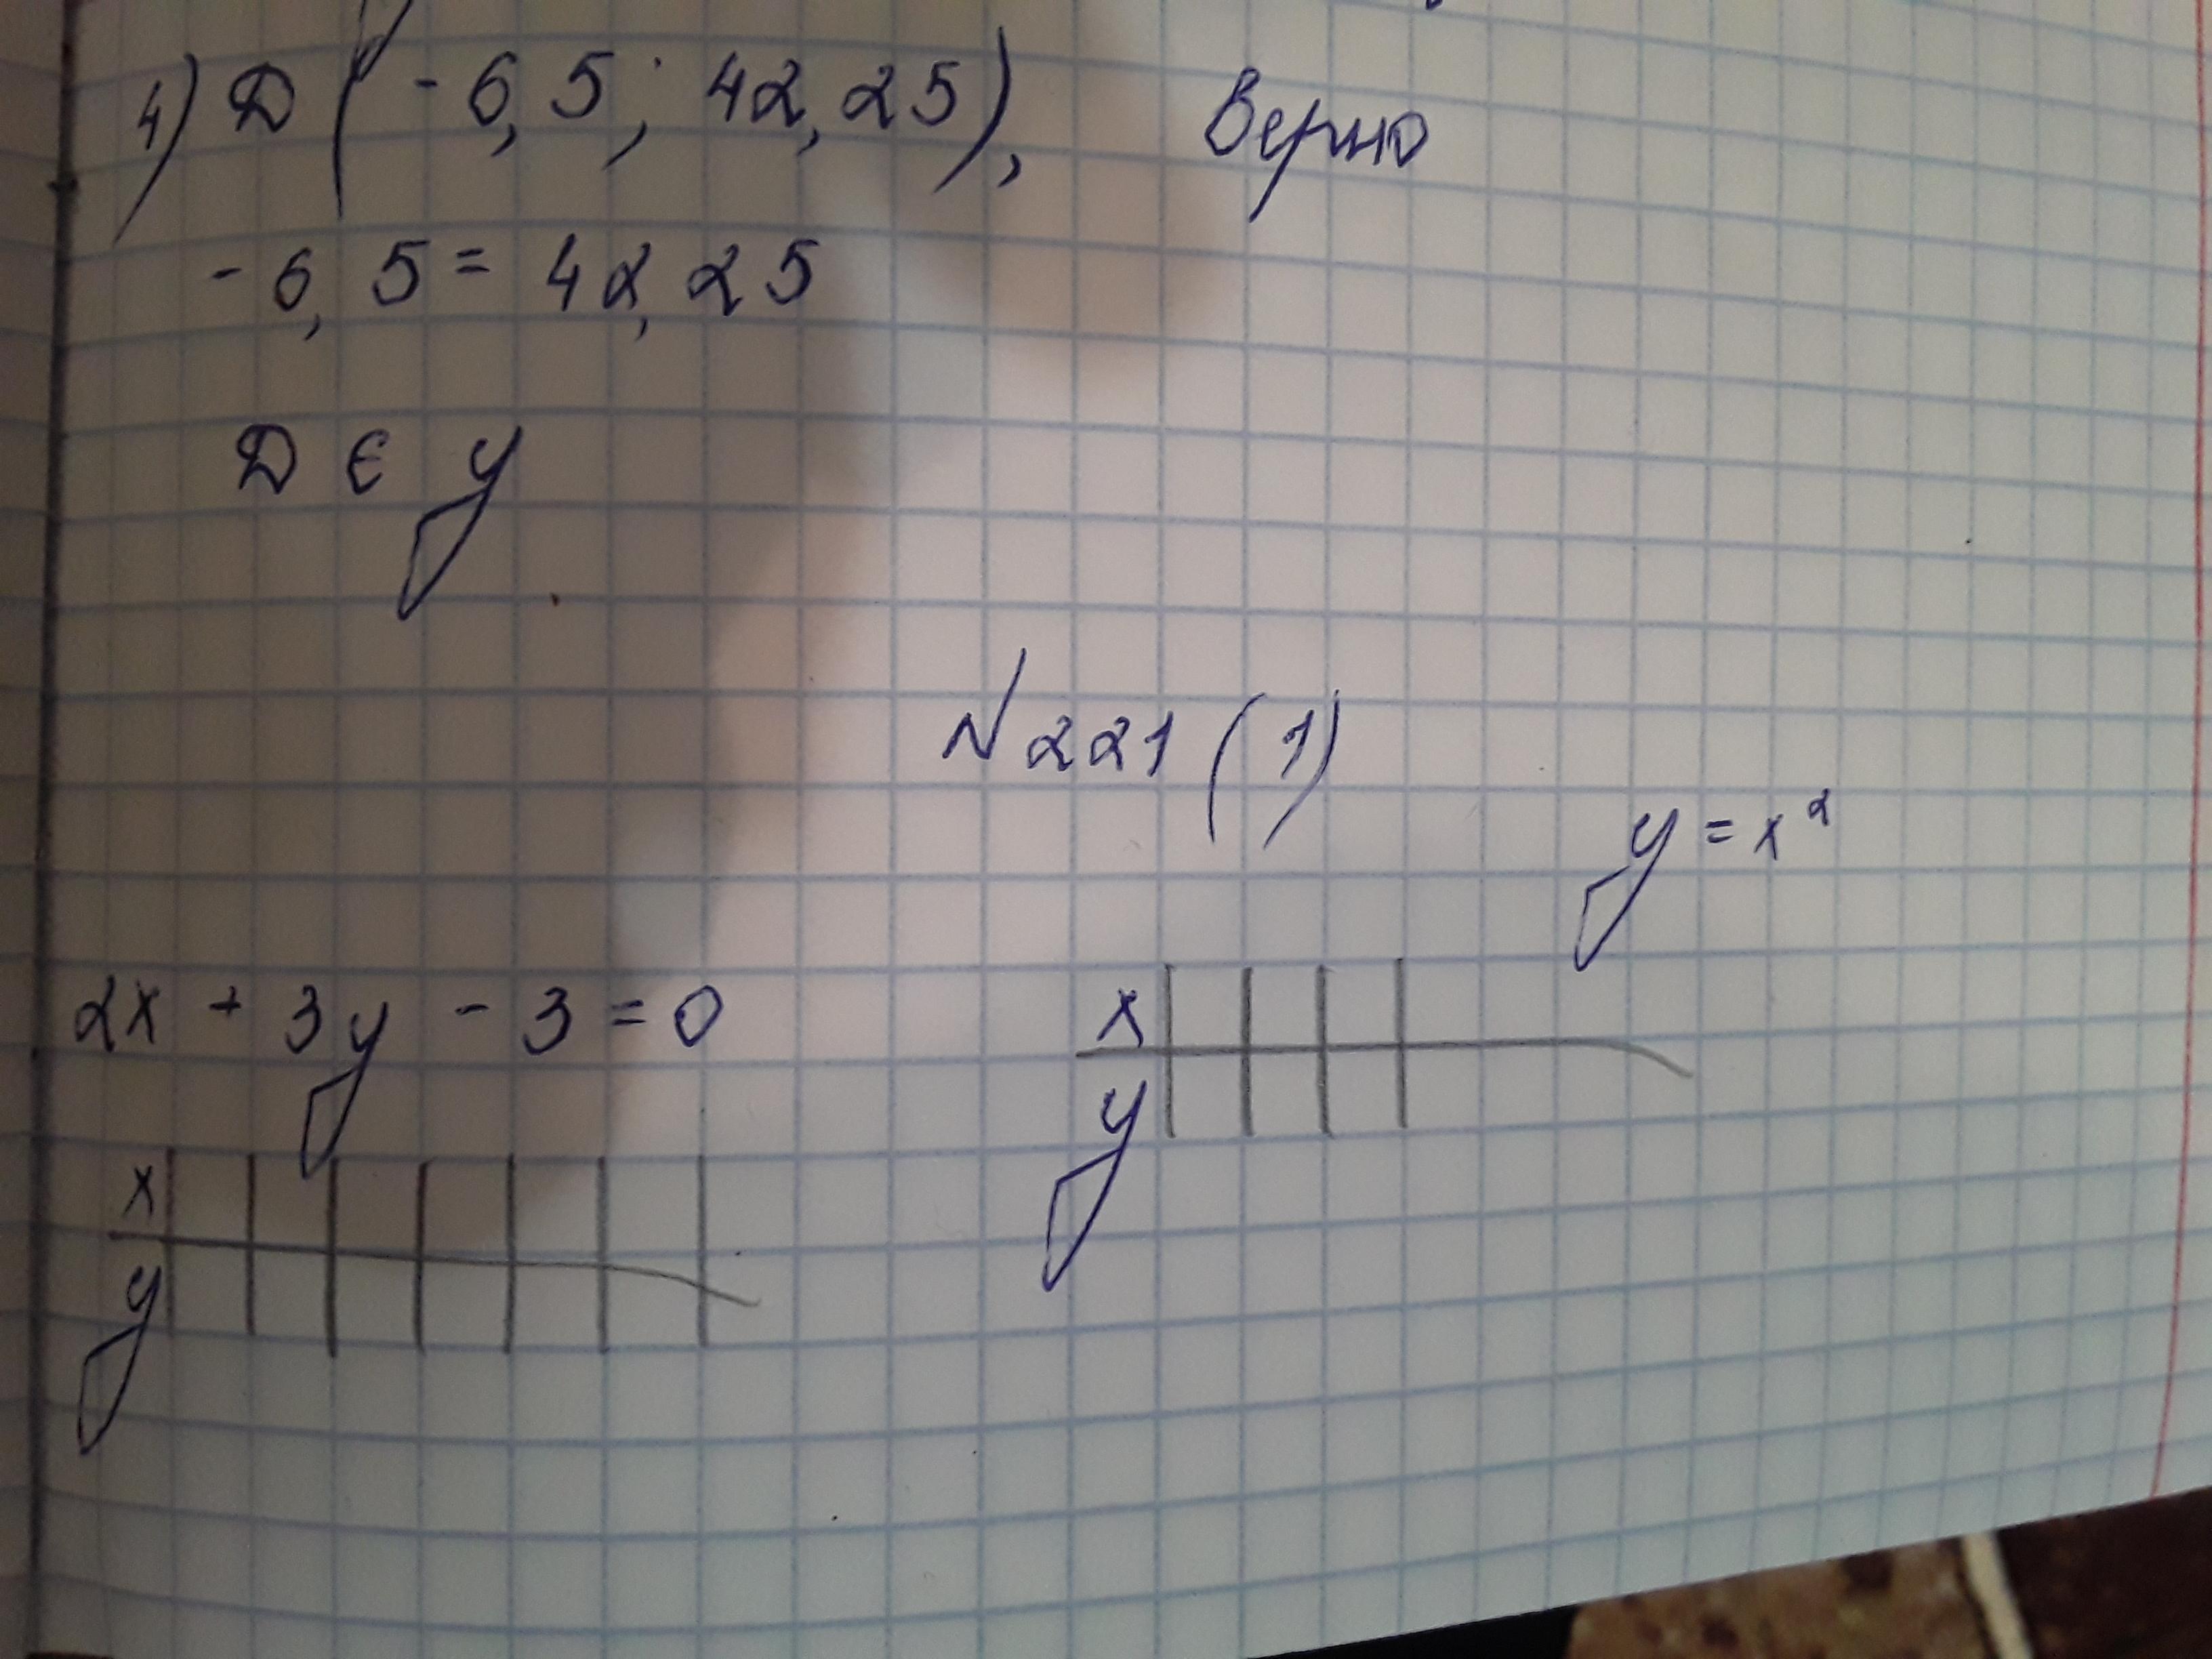 4) Д (-6,5; 42,25), Верно
-6,5 = 42,25
Д ∈ у
N 221 (1)
y = x²
2x + 3y - 3 = 0
x
y
x
y